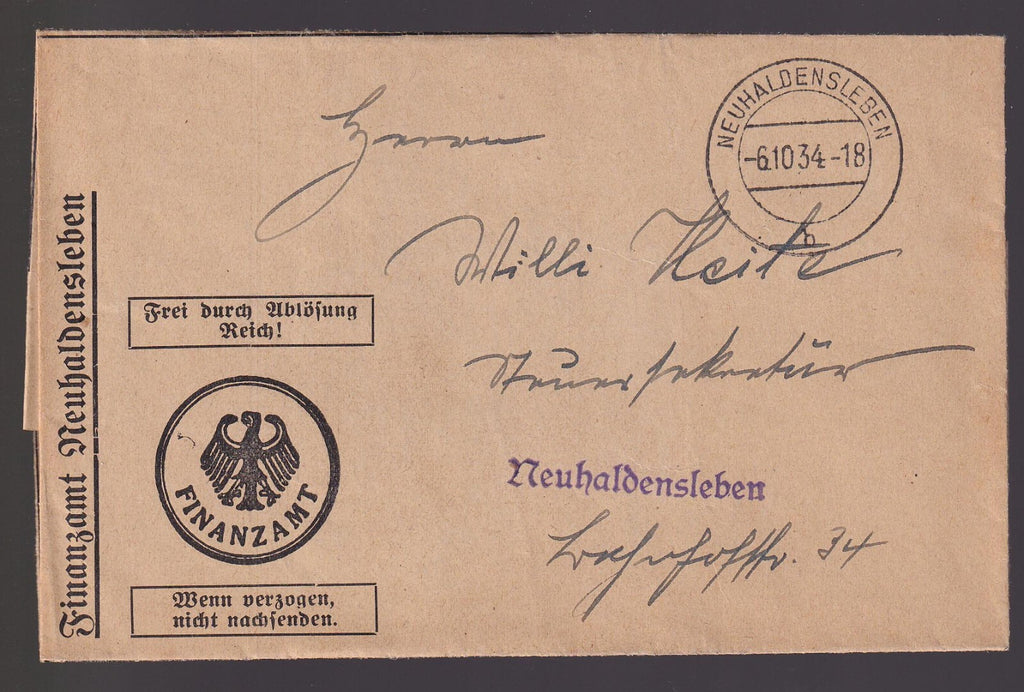 Finanzamt Neuhaldensleben
NEUHALDENSLEBEN
-6.10.34.-18
b
Herrn
Willi Heite
Steuersekretär
Neuhaldensleben
Bahnhofstr. 34
Frei durch Ablösung
Reich!
FINANZAMT
Wenn verzogen,
nicht nachsenden.